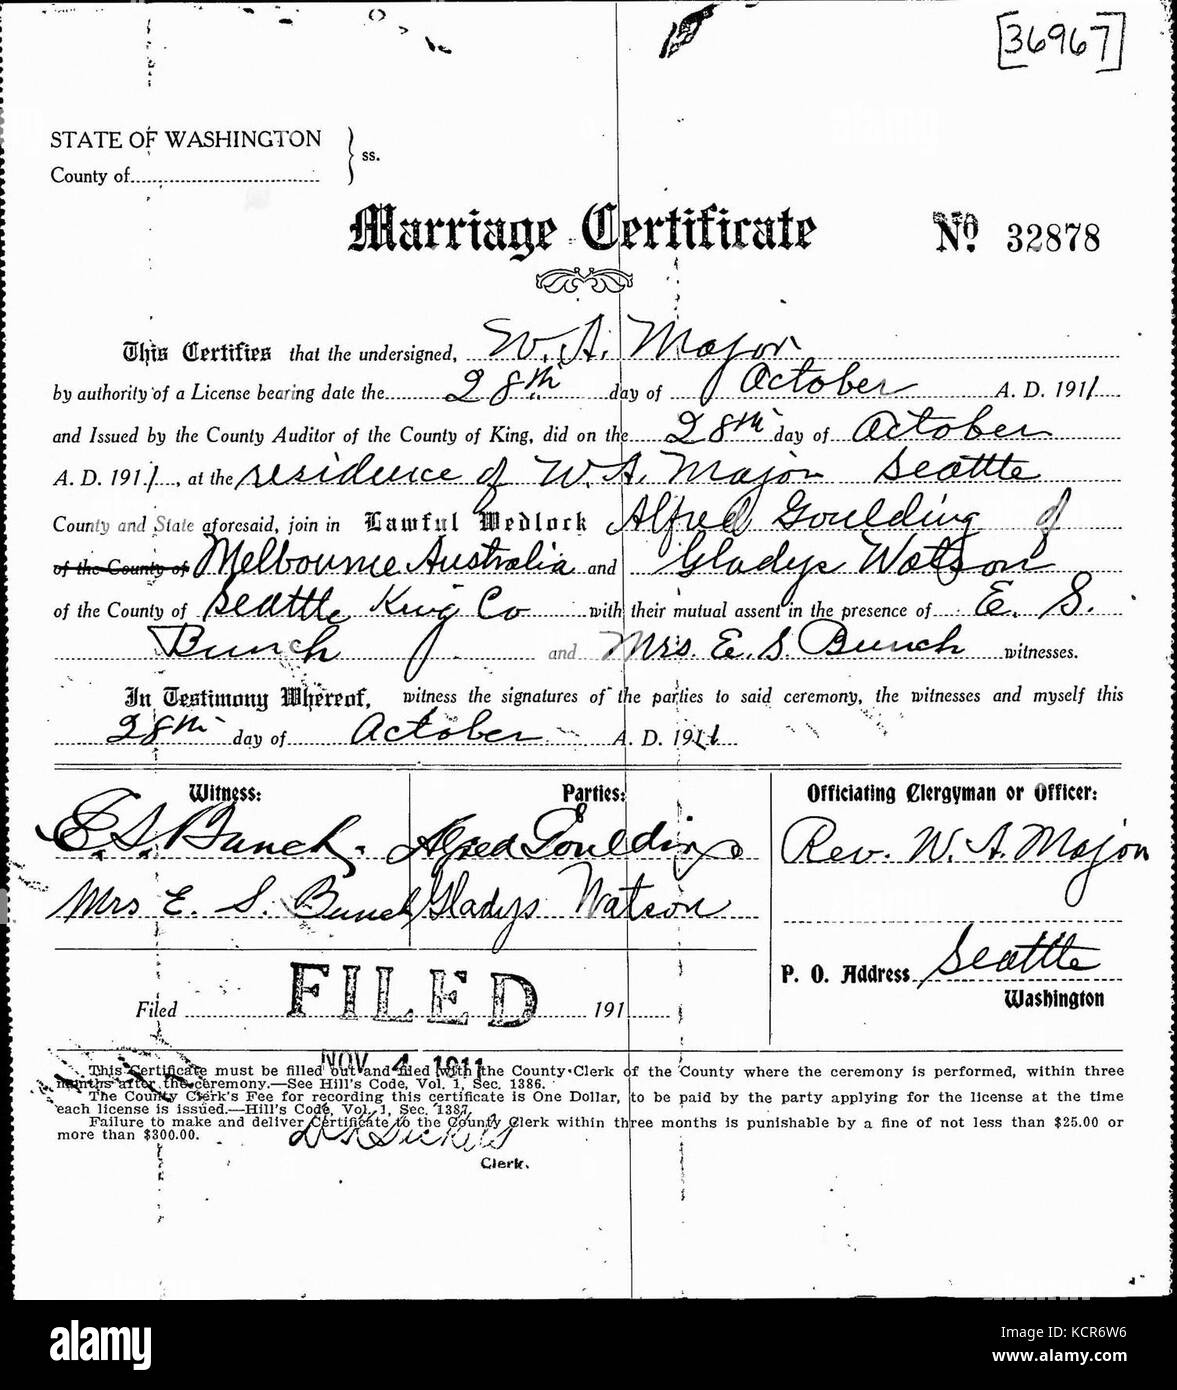 [36967]
STATE OF WASHINGTON
County of
ss.
Marriage Certificate
No. 32878
This Certifies that the undersigned, W. A. Major
by authority of a License bearing date the 28th day of October A. D. 1911
and Issued by the County Auditor of the County of King, did on the 28th day of October
A. D. 1911, at the residence of W. A. Major Seattle
County and State aforesaid, join in Lawful Wedlock Alfred Goulding of
of the County of Melbourne Australia and Gladys Watson
of the County of Seattle King Co with their mutual assent in the presence of E. S.
Bunch and Mrs. E. S. Bunch witnesses.
In Testimony Whereof, witness the signatures of the parties to said ceremony, the witnesses and myself this
28th day of October A. D. 1911
Witness:
E. S. Bunch.
Mrs E. S. Bunch
Parties:
Alfred Goulding
Gladys Watson
Officiating Clergyman or Officer:
Rev. W. A. Major
P. O. Address Seattle
Washington
Filed FILED 191
NOV 4 1911
This Certificate must be filled out and filed with the County Clerk of the County where the ceremony is performed, within three
months after the ceremony.—See Hill's Code, Vol. 1, Sec. 1386.
The County Clerk's Fee for recording this certificate is One Dollar, to be paid by the party applying for the license at the time
each license is issued.—Hill's Code, Vol. 1, Sec. 1387.
Failure to make and deliver Certificate to the County Clerk within three months is punishable by a fine of not less than $25.00 or
more than $300.00.
Clerk.
alamy stock photo
KCR6W6
www.alamy.com